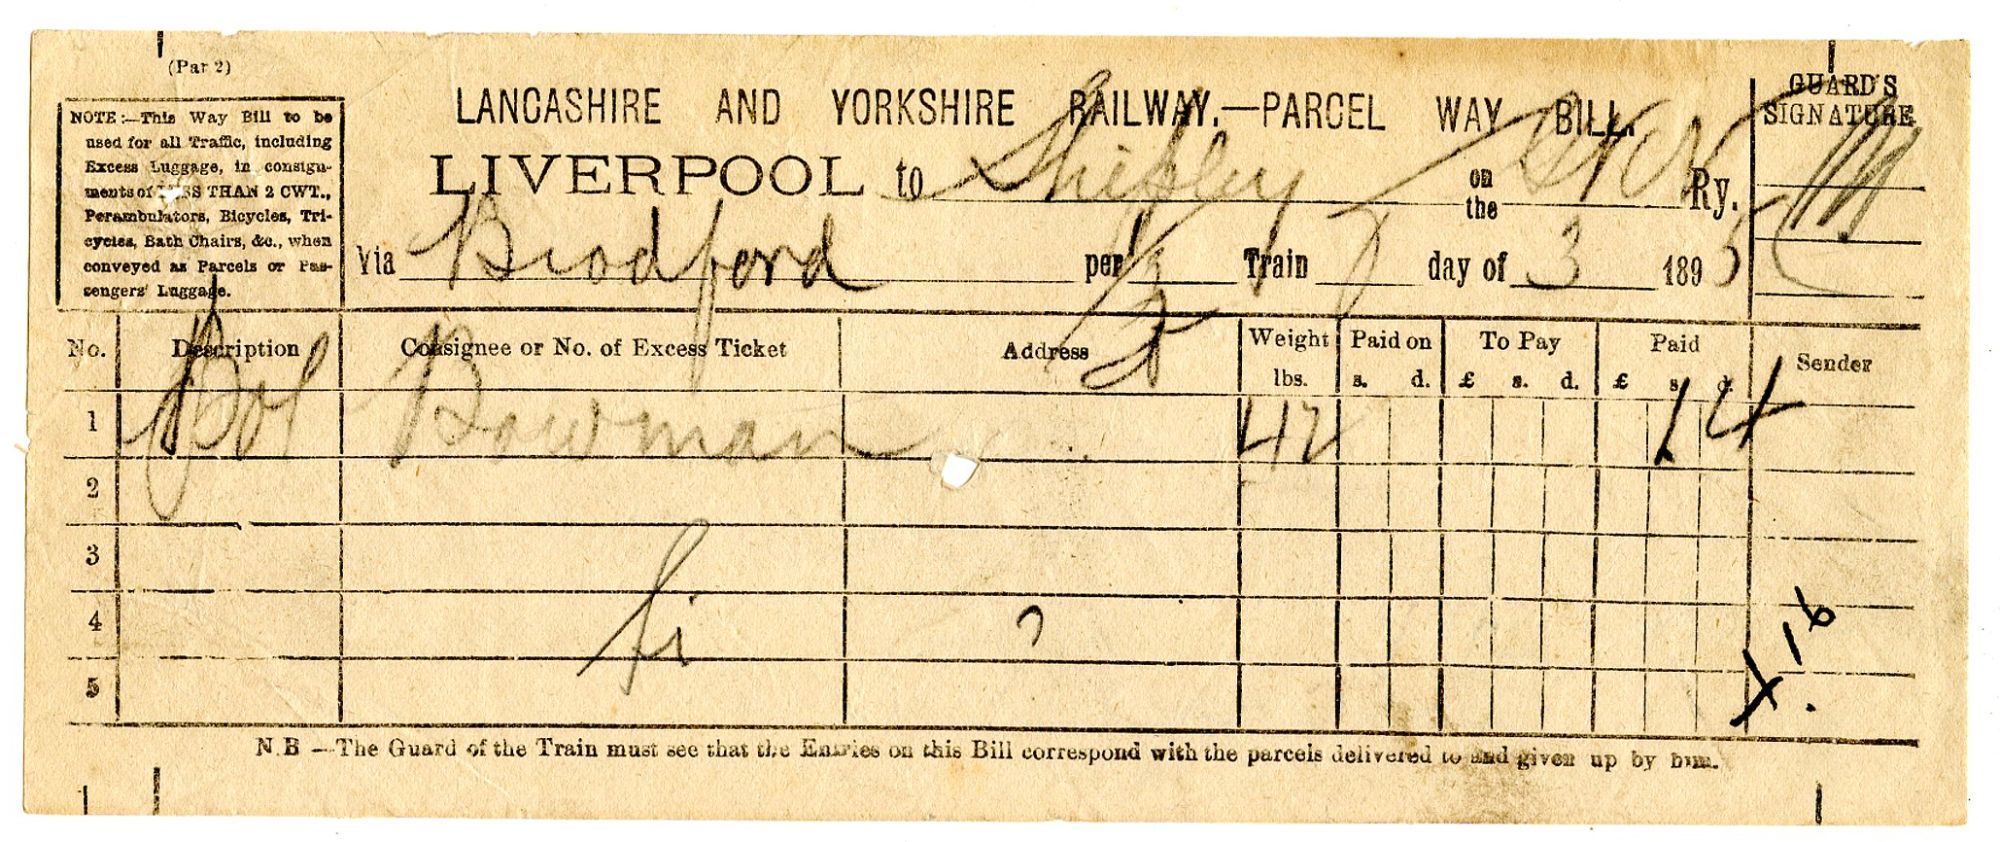 (Par 2)
NOTE:—This Way Bill to be
used for all Traffic, including
Excess Luggage, in consign-
ments of LESS THAN 2 CWT.,
Perambulators, Bicycles, Tri-
cycles, Bath Chairs, &c., when
conveyed as Parcels or Pas-
sengers' Luggage.
LANCASHIRE AND YORKSHIRE RAILWAY.—PARCEL WAY BILL.
GUARD'S
SIGNATURE
LIVERPOOL to Shipley on the Ry.
Via Bradford per Train day of 3 1895
No. Description Consignee or No. of Excess Ticket Address Weight lbs. Paid on s. d. To Pay £ s. d. Paid £ s. d. Sender
1 Bowman 42 1 4
2
3
4
5
N.B —The Guard of the Train must see that the Entries on this Bill correspond with the parcels delivered to and given up by him.